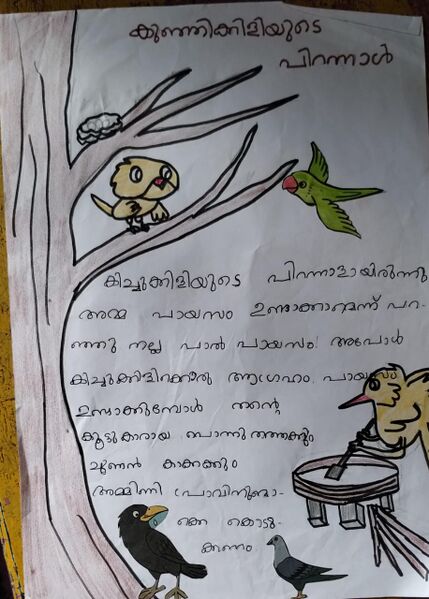 കുഞ്ഞിക്കിളിയുടെ
പിറന്നാൾ
കിച്ചുക്കിളിയുടെ പിറന്നാളായിരുന്നു
അമ്മ പായസം ഉണ്ടാക്കാമെന്ന് പറ-
ഞ്ഞു നല്ല പാൽ പായസം! അപ്പോൾ
കിച്ചുക്കിളിക്കൊരു ആഗ്രഹം. പായസം
ഉണ്ടാക്കുമ്പോൾ തന്റെ
കൂട്ടുകാരായ പൊന്നു തത്തക്കും
കാക്കക്കും
അമ്മിണി പ്രാവിനുമൊ-
ക്കെ കൊടു-
ക്കണം